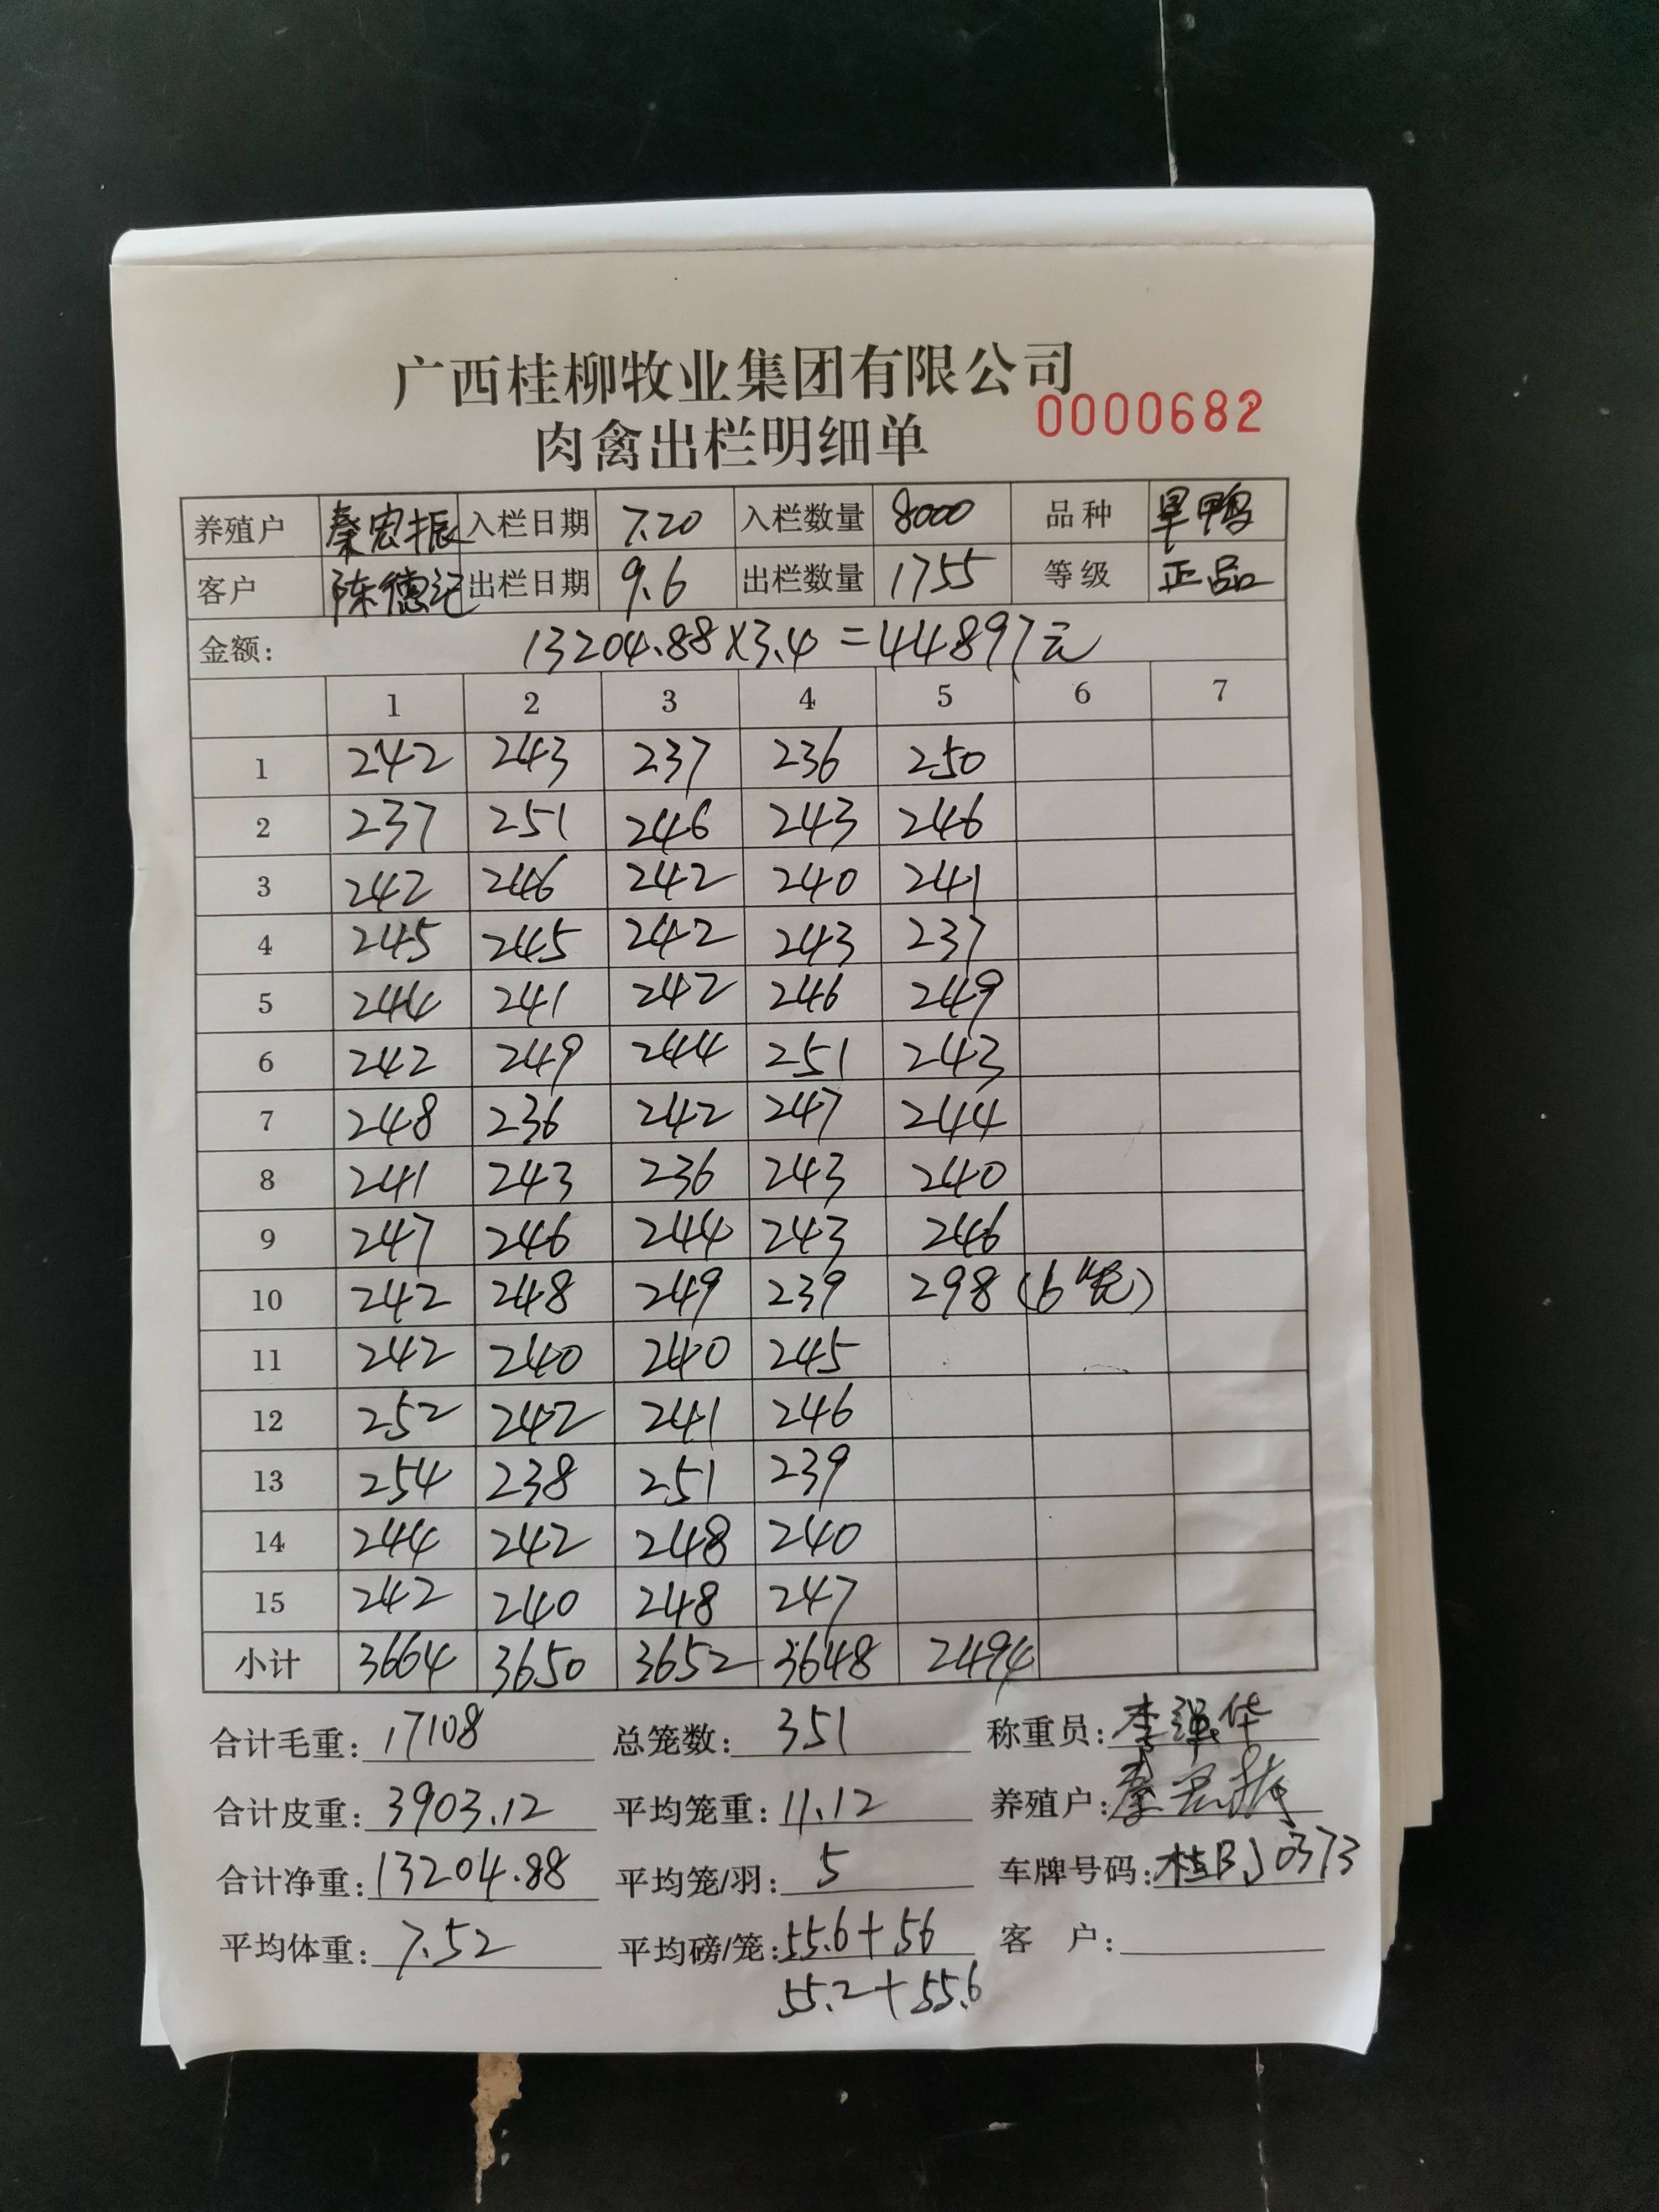 广西桂柳牧业集团有限公司
0000682
肉禽出栏明细单
养殖户 秦宏振 入栏日期 7.20 入栏数量 8000 品种 旱鸭
客户 陈德记 出栏日期 9.6 出栏数量 1755 等级 正品
金额: 13204.88×3.4=44897元
1 2 3 4 5 6 7
1 242 243 237 236 250
2 237 251 246 243 246
3 242 246 242 240 241
4 245 245 242 243 237
5 244 241 242 246 249
6 242 249 244 251 243
7 248 236 242 247 244
8 241 243 236 243 240
9 247 246 244 243 246
10 242 248 249 239 298 (6笼)
11 242 240 240 245
12 252 242 241 246
13 254 238 251 239
14 244 242 248 240
15 242 240 248 247
小计 3664 3650 3652 3648 2494
合计毛重: 17108 总笼数: 351 称重员: 李泽华
合计皮重: 3903.12 平均笼重: 11.12 养殖户: 秦宏振
合计净重: 13204.88 平均笼/羽: 5 车牌号码: 桂BJ0373
平均体重: 7.52 平均磅/笼: 55.6+56 客 户:
55.2+55.6